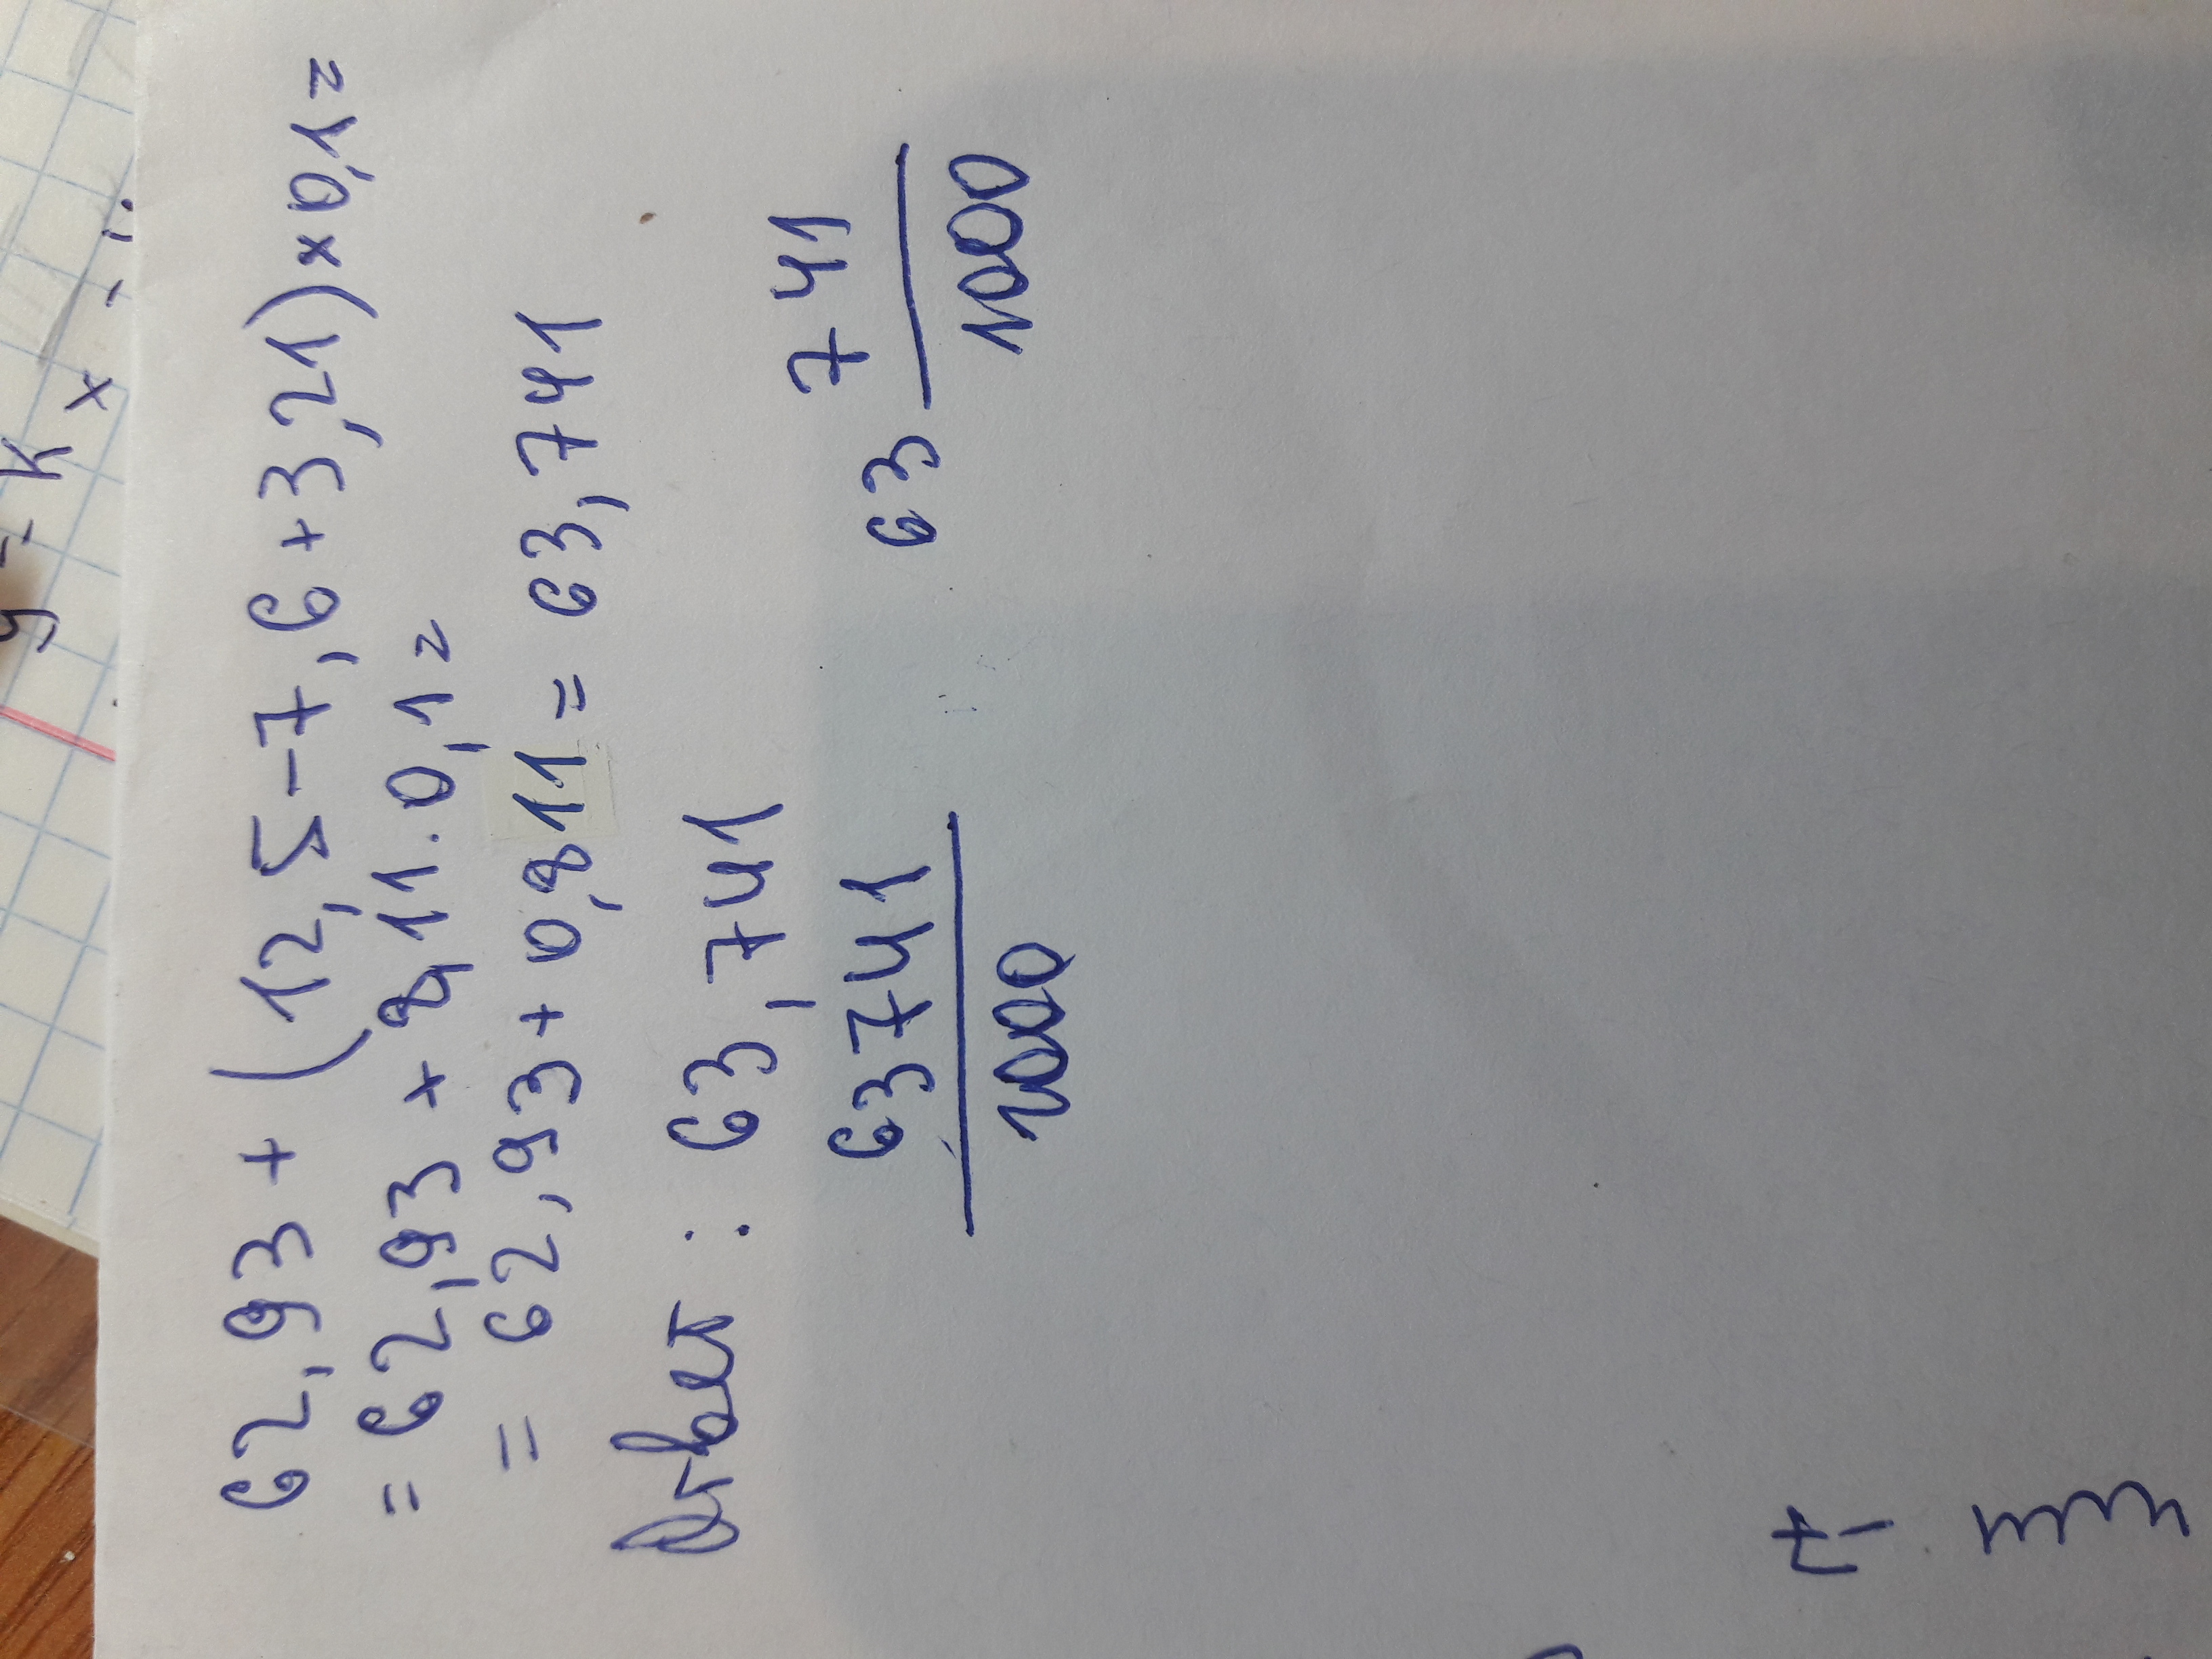 62,93 + (12,5-7,6+3,21)×0,1=
= 62,93 + 8,11·0,1=
= 62,93+0,811= 63,741
Ответ: 63,741
63741
1000
63 741
1000
y = k
x
-7